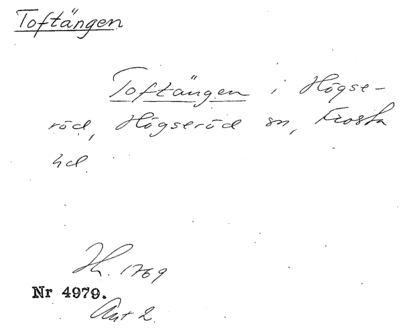 Toftängen
Toftängen i Högse-
röd, Högseröd sn, Frosta
hd.
Hh. 1769
Nr 4979.
Akt 2.